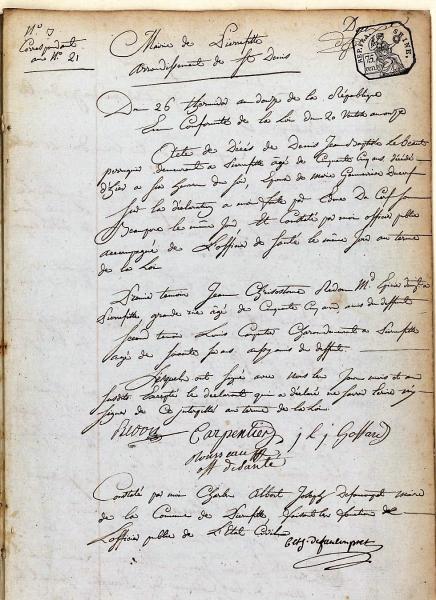 N.º 7
Correspondant
au N.º 21
Mairie de Pierrefitte
arrondissement de St Denis
SEINE
75
Du 26 thermidor an douze de la République
En Conformité de la Loi du 20 Ventôse an onze
Acte de décès de Denis Jean Baptiste
perruquier demeurant a Pierrefitte agé de Cinquante Cinq ans décédé
d'hier a six heures du soir, Epoux de marie Geneviève
Sur la déclaration a moi faite par
le même Jour Et Constaté par moi officier public
accompagné de L'officier de Santé le même Jour au terme
de la Loi
Premier temoin Jean Chrisostome Redon Md Epicier
Pierrefitte, grande rue agé de Cinquante Cinq ans ami du deffunt
Second temoin Louis Carpentier a Pierrefitte
agé de ans aussy ami du deffunt
Lesquels ont signé avec nous les Jour mois et an
susdits Excepté le declarant qui a déclaré ne savoir Ecrire ny
signer de Ce interpellé au terme de la Loi
Redon Carpentier j l j Goffard
rousseau
off de Santé
Constaté par moi Charles Albert Joseph Defauconpret maire
de la Commune de Pierrefitte, faisant les fonctions de
L'officier public de L'Etat Civil
defauconpret